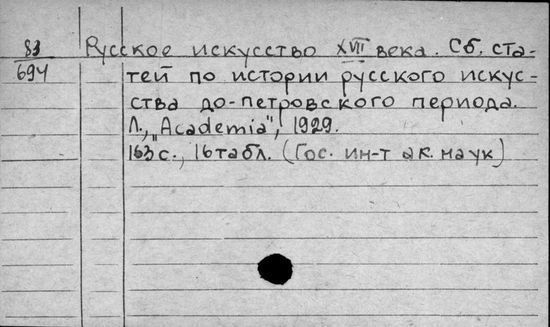 83 Русское искусство XVII века. Сб. ста-
694 тей по истории русского искус-
ства до-петровского периода.
Л., „Academia", 1929.
163 с., 16 табл. (Гос. ин-т ак. наук)